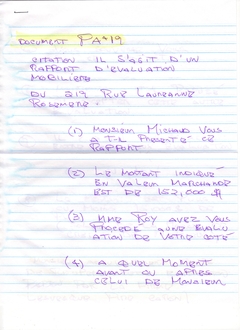 DOCUMENT PA-19
CITATION IL S'AGIT D'UN
RAPPORT D'ÉVALUATION
MOBILIÈRE
DU 219 RUE LAUREANNE
ROSEMÈRE.
(1) MONSIEUR MICHAUD VOUS
A T-IL PRÉSENTÉ CE
RAPPORT
(2) LE MONTANT INDIQUÉ
EN VALEUR MARCHANDE
EST DE 152,000 $
(3) MME ROY AVEZ VOUS
PROCÉDÉ A UNE ÉVALU
ATION DE VOTRE COTÉ
(4) A QUEL MOMENT
AVANT OU APRÈS
CELUI DE MONSIEUR